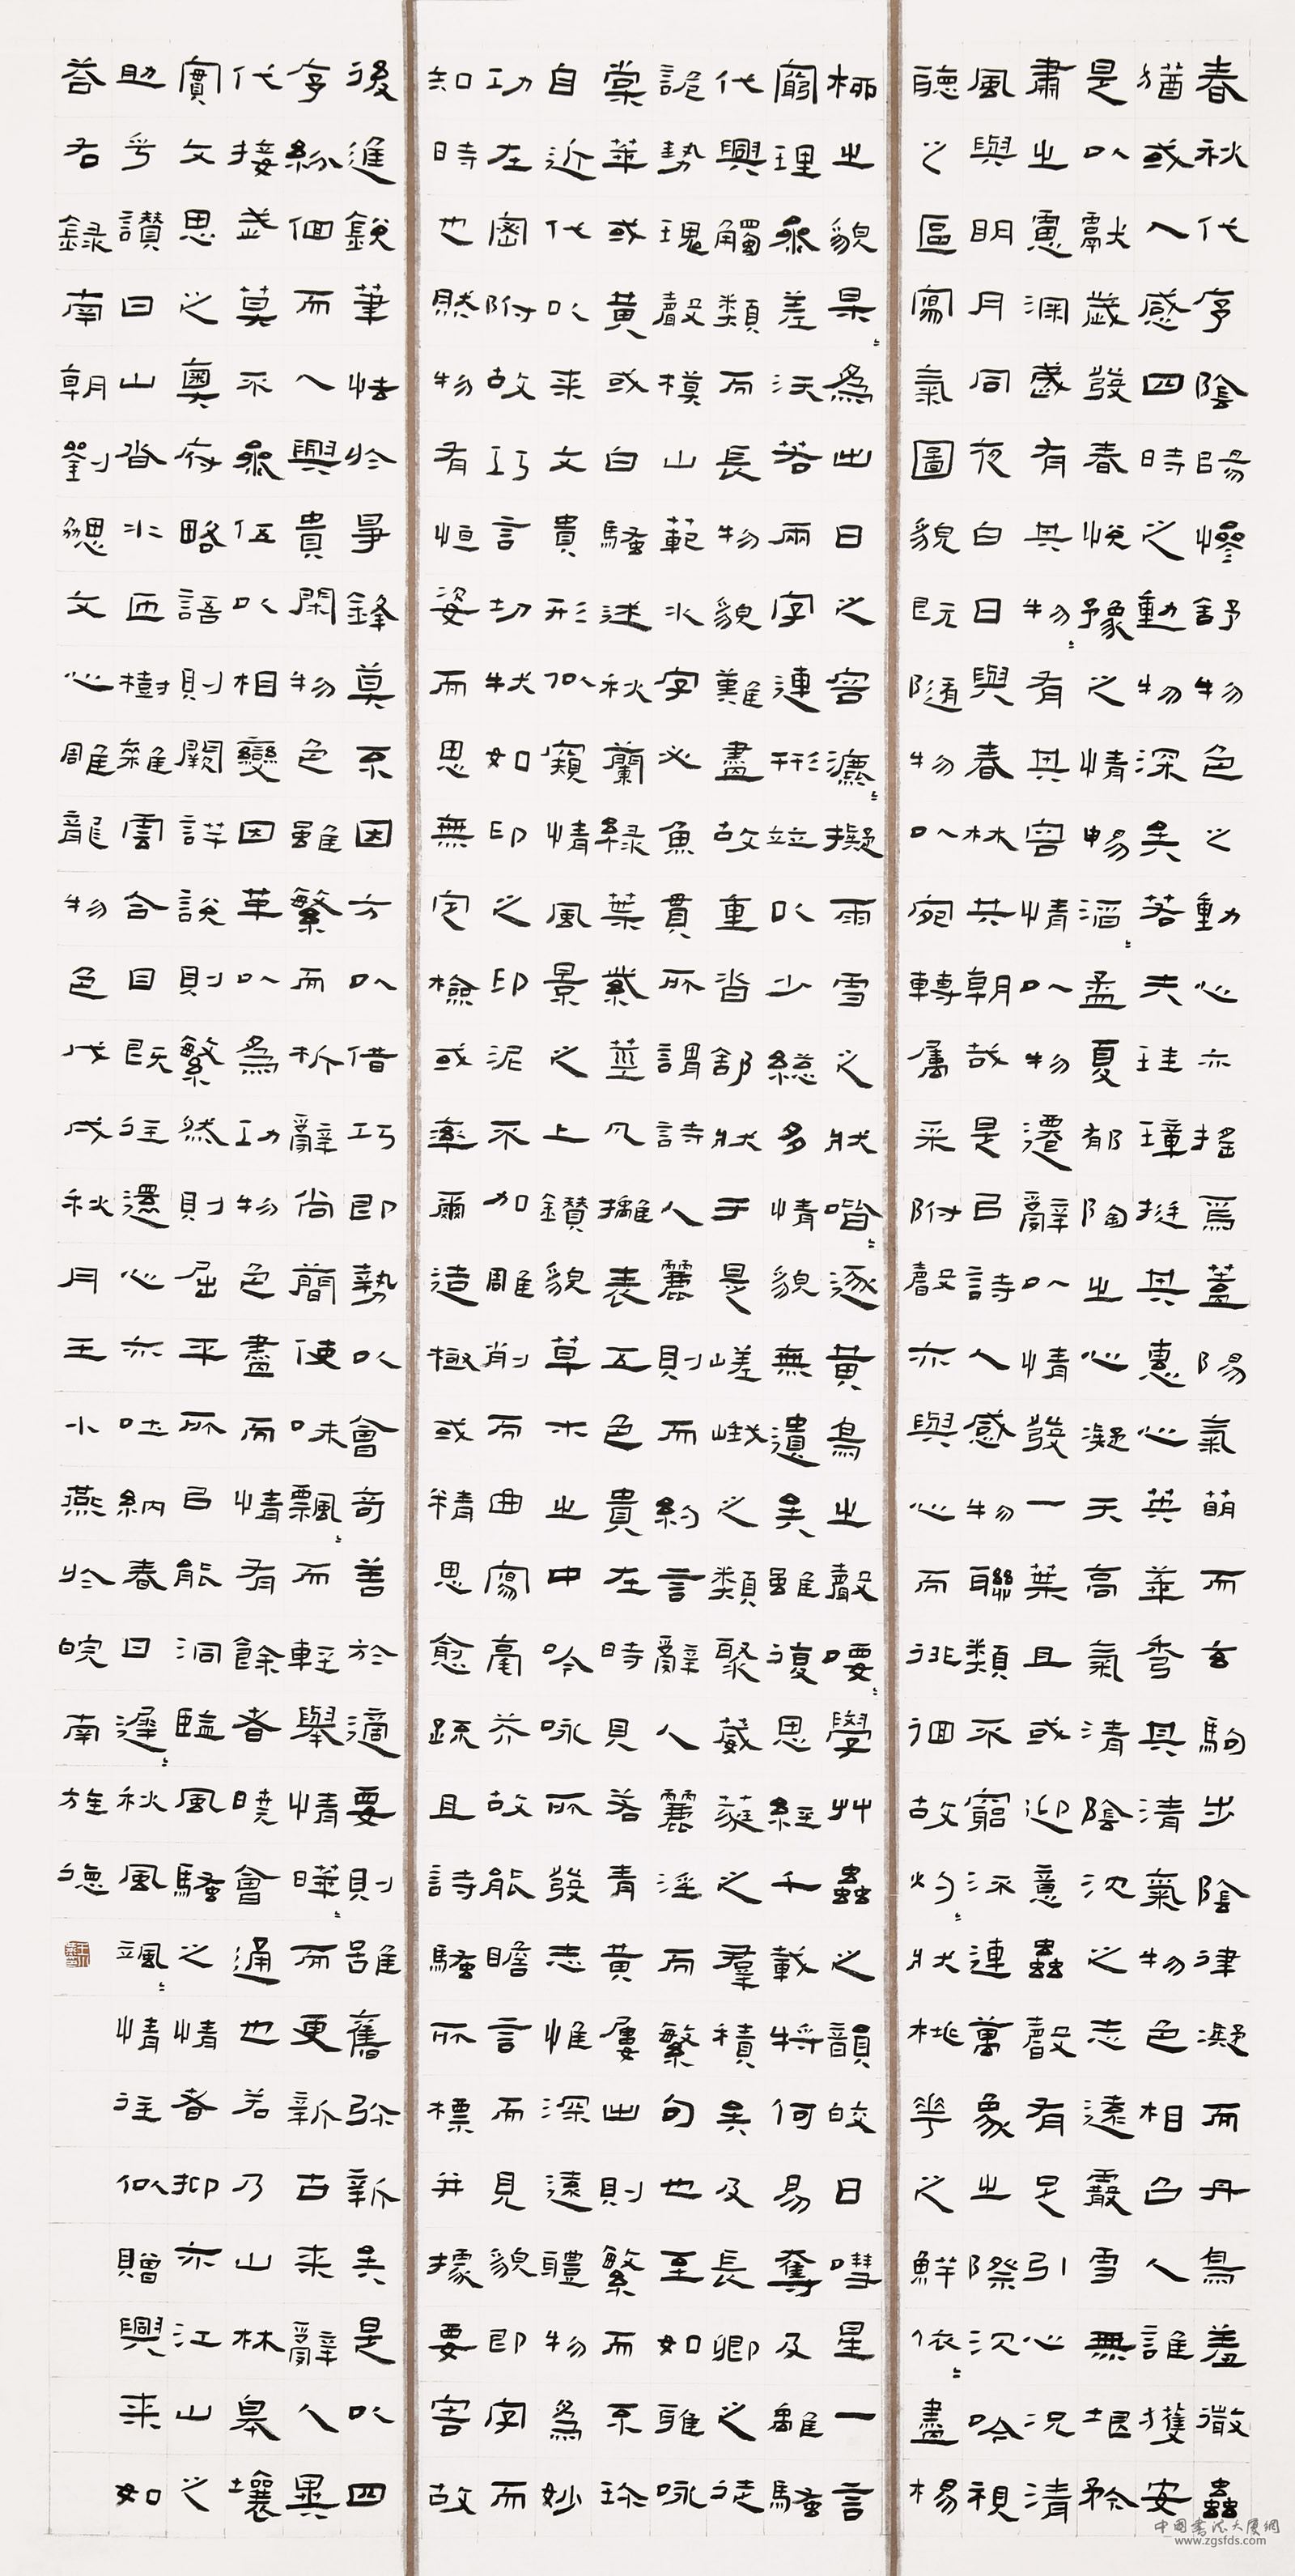 春秋代序陰陽慘舒物色之動心亦搖焉蓋陽氣萌而玄駒步陰律凝而丹鳥羞微蟲
猶或入感四時之動物深矣若夫珪璋挺其惠心英華秀其清氣物色相召人誰獲安
是以獻歲發春悅豫之情暢滔〻孟夏郁陶之心凝天高氣清陰沈之志遠霰雪無垠矜
肅之慮深歲有其物〻有其容情以物遷辭以情發一葉且或迎意蟲聲有足引心況清
風與明月同夜白日與春林共朝哉是以詩人感物聯類不窮流連萬象之際沉吟視
聽之區寫氣圖貌既隨物以宛轉屬采附聲亦與心而徘徊故灼〻狀桃華之鮮依〻盡楊
柳之貌杲〻為出日之容瀌〻擬雨雪之狀喈〻逐黃鳥之聲喓〻學艸蟲之韻皎日嘒星一言
窮理參差沃若兩字連形並以少總多情貌無遺矣雖復思經千載將何易奪及離騷
代興觸類而長物貌難盡故重沓舒狀于是嵯峨之類聚葳蕤之羣積矣及長卿之徒
詭勢瑰聲模山範水字必魚貫所謂詩人麗則而約言辭人麗淫而繁句也至如雅咏
棠華或黃或白騷述秋蘭綠葉紫莖凡摛表五色貴在時見若青黃屢出則繁而不珍
自近代以来文貴形似窺情風景之上鑽貌草木之中吟咏所發志惟深遠體物為妙
功在密附故巧言切狀如印之印泥不加雕削而曲寫毫芥故能瞻言而見貌即字而
知時也然物有恒姿而思無定檢或率爾造極或精思愈疏且詩騷所標并據要害故
後進銳筆怯於爭鋒莫不因方以借巧即勢以會奇善於適要則雖舊弥新矣是以四
序紛迴而入興貴閑物色雖繁而析辭尚簡使味飄〻而輕舉情曄〻而更新古来辭人異
代接武莫不參伍以相變因革以為功物色盡而情有餘者曉會通也若乃山林皋壤
實文思之奧府略語則闕詳說則繁然則屈平所以能洞監風騷之情者抑亦江山之
助乎讚曰山沓水匝樹雜雲合目既往還心亦吐納春日遲〻秋風颯〻情往似贈興来如
答右録南朝劉勰文心雕龍物色戊戌秋月王小燕於皖南旌德
中国书法大厦網
www.zgsfds.com